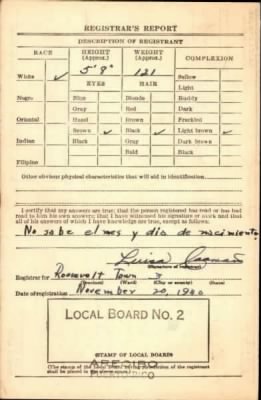 REGISTRAR'S REPORT
DESCRIPTION OF REGISTRANT
RACE HEIGHT (Approx.) WEIGHT (Approx.) COMPLEXION
5' 9" 121
White ✓ EYES HAIR Sallow
Light
Negro Blue Blonde Ruddy
Gray Red Dark
Oriental Hazel Brown Freckled
Brown ✓ Black ✓ Light brown ✓
Indian Black Gray Dark brown
Bald Black
Filipino
Other obvious physical characteristics that will aid in identification
I certify that my answers are true; that the person registered has read or has had
read to him his own answers; that I have witnessed his signature or mark and that
all of his answers of which I have knowledge are true, except as follows:
No sabe el mes y dia de nacimiento
Luisa
(Signature of registrar)
Registrar for Roosevelt Town 3
(Precinct) (Ward) (City or county) (State)
Date of registration November 20, 1940
LOCAL BOARD No. 2
ARECIBO
PUERTO RICO
(STAMP OF LOCAL BOARD)
(The stamp of the Local Board having jurisdiction of the registrant
shall be placed in the above space.)